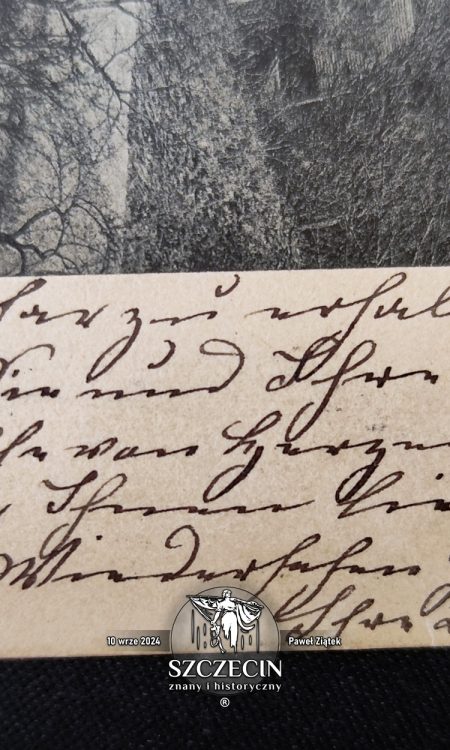 zu erhal
Sie und Ihre
von Herzen
Ihnen
Wiedersehen
Ihre
10 wrze 2024 Paweł Ziątek
SZCZECIN
znany i historyczny
®